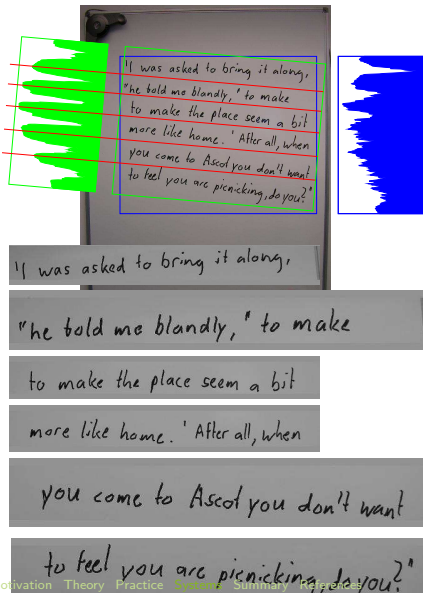 'I was asked to bring it along,
"he told me blandly, " to make
to make the place seem a bit
more like home. ' After all, when
you come to Ascot you don't want
to feel you are picnicking, do you?"
'I was asked to bring it along,
"he told me blandly, " to make
to make the place seem a bit
more like home. ' After all, when
you come to Ascot you don't want
to feel you are picnicking, do you?"
Theory Practice Systems Summary References